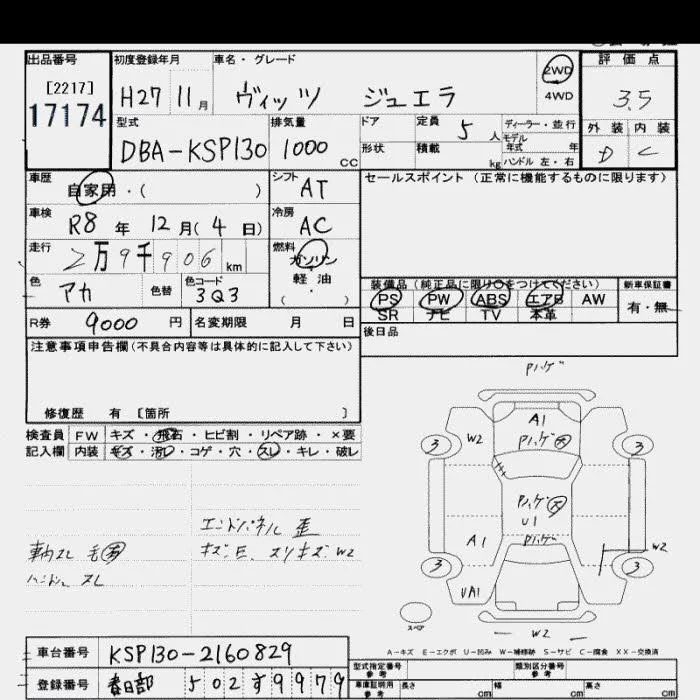 出品番号
[2217]
17174
初度登録年月
H27 11月
車名・グレード
ヴィッツ ジュエラ
2WD
4WD
評価点
3.5
外装 内装
D C
型式
DBA-KSP130
排気量
1000 CC
ドア
定員 5 人
形状
積載 kg
ディーラー・並行
モデル年式 年
ハンドル 左・右
車歴
自家用・( )
シフト
AT
セールスポイント (正常に機能するものに限ります)
車検
R8 年 12 月(4 日)
冷房
AC
走行
2万9千906 km
燃料
ガソリン
軽油
( ・ )
色
アカ
色替
色コード
3Q3
装備品(純正品に限り○をつけてください)
新車保証書
PS PW ABS エアB AW
有・無
SR ナビ TV 本革
R券 9000 円
名変期限 月 日
後日品
注意事項申告欄(不具合内容等は具体的に記入して下さい)
修復歴 有 [箇所 ]
検査員
記入欄
FW キズ・飛石・ヒビ割・リペア跡・×要
内装 キズ・汚レ・コゲ・穴・スレ・キレ・破レ
エンドパネル 歪
キズ・E、スリキズ W2
ハンドル スレ
Pハゲ
A1
Pハゲ 大
W2
3
3
Pハゲ 大
U1
Pハゲ
A1
W2
3
3
UA1
スペア
W2
A-キズ E-エクボ U-凹み W-補修跡 S-サビ C-腐食 XX-交換済
車台番号
KSP130-2160829
登録番号
春日部 502 す 9979
型式指定番号
参考
類別区分番号
参考
車庫証明用
参考
長さ cm
幅 cm
高さ cm